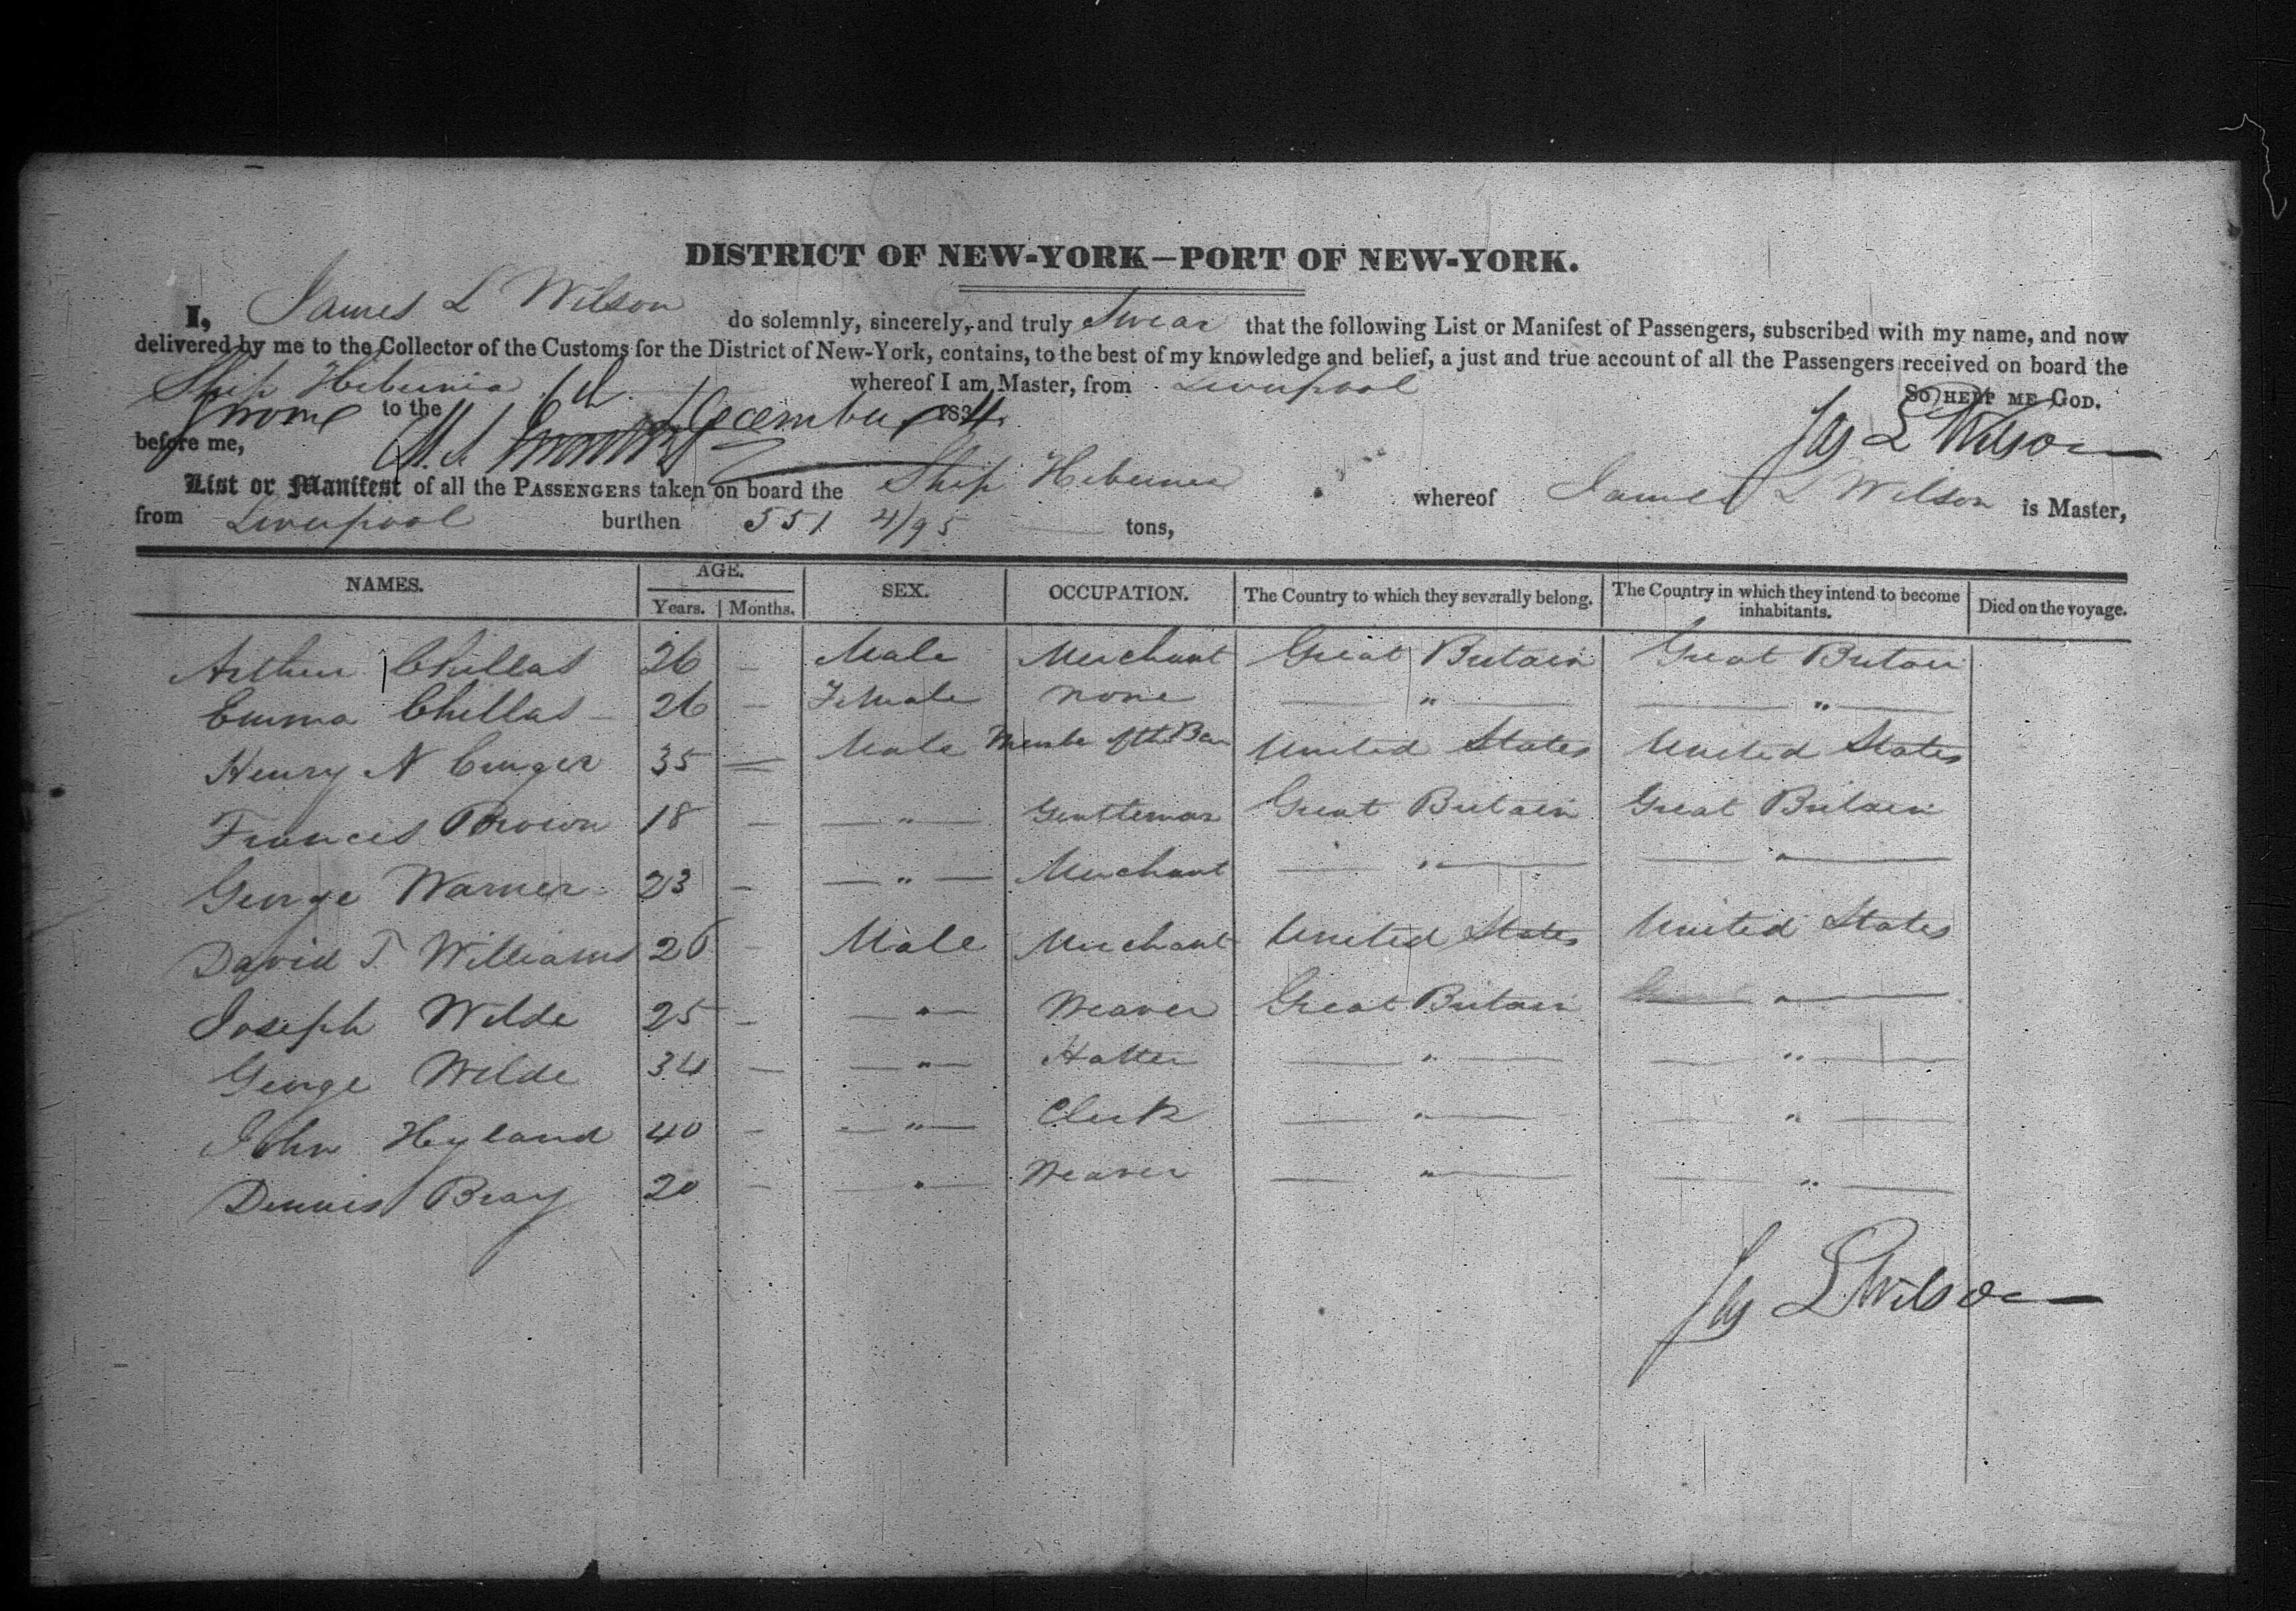 DISTRICT OF NEW-YORK—PORT OF NEW-YORK.
I, James L Wilson do solemnly, sincerely, and truly Swear that the following List or Manifest of Passengers, subscribed with my name, and now
delivered by me to the Collector of the Customs for the District of New-York, contains, to the best of my knowledge and belief, a just and true account of all the Passengers received on board the
Ship Hibernia whereof I am Master, from Liverpool
So HELP ME GOD.
to the December 1834
Jas L Wilson
before me,
List or Manifest of all the PASSENGERS taken on board the Ship Hibernia whereof James L Wilson is Master,
from Liverpool burthen 551 4/95 tons,
NAMES. AGE. Years. Months. SEX. OCCUPATION. The Country to which they severally belong. The Country in which they intend to become inhabitants. Died on the voyage.
Arthur Chillas 26 — Male Merchant Great Britain Great Britain
Emma Chillas 26 — Female none — " — — " —
Henry N Cruger 35 — Male Membr of the Bar United States United States
Frances Brown 18 — — " — Gentleman Great Britain Great Britain
George Warner 23 — — " — Merchant — " — — " —
David T Williams 26 — Male Merchant United States United States
Joseph Wilde 25 — — " — Weaver Great Britain — " —
George Wilde 34 — — " — Hatter — " — — " —
John Hyland 40 — — " — Clerk — " — — " —
Dennis Bray 20 — — " — Weaver — " — — " —
Jas L Wilson